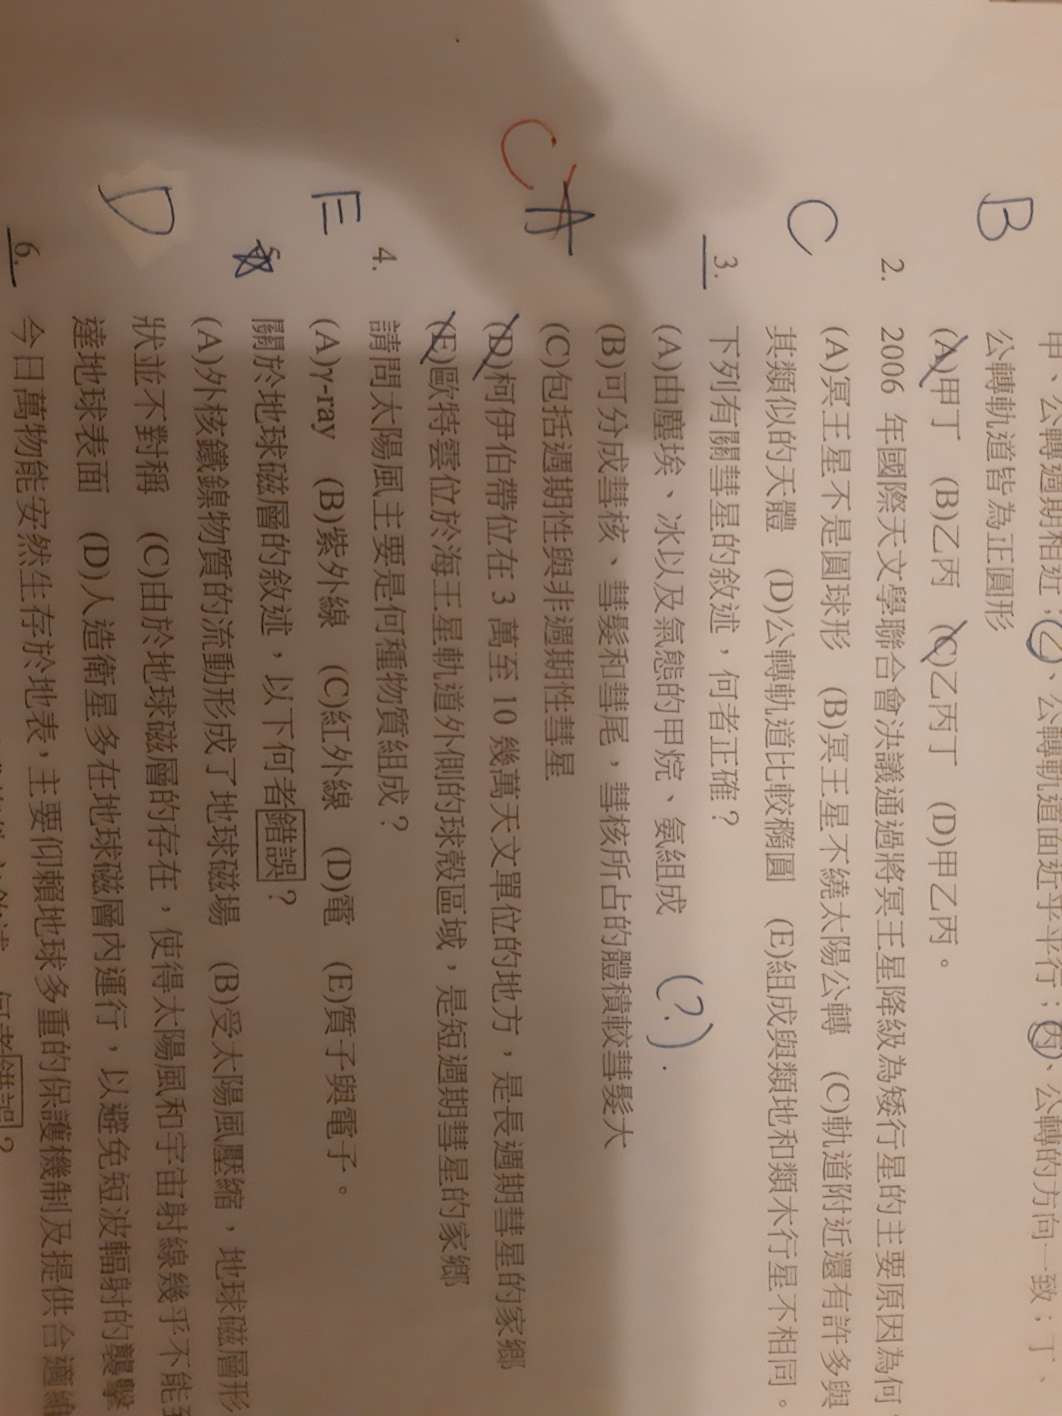 甲、公轉週期相近；乙、公轉軌道面近乎平行；丙、公轉的方向一致；丁、
公轉軌道皆為正圓形
B
(A)甲丁 (B)乙丙 (C)乙丙丁 (D)甲乙丙。
2. 2006 年國際天文學聯合會決議通過將冥王星降級為矮行星的主要原因為何
(A)冥王星不是圓球形 (B)冥王星不繞太陽公轉 (C)軌道附近還有許多與
C
其類似的天體 (D)公轉軌道比較橢圓 (E)組成與類地和類木行星不相同。
3. 下列有關彗星的敘述，何者正確？
(A)由塵埃、冰以及氣態的甲烷、氨組成 (?).
(B)可分成彗核、彗髮和彗尾，彗核所占的體積較彗髮大
C A
(C)包括週期性與非週期性彗星
(D)柯伊伯帶位在 3 萬至 10 幾萬天文單位的地方，是長週期彗星的家鄉
(E)歐特雲位於海王星軌道外側的球殼區域，是短週期彗星的家鄉
4. 請問太陽風主要是何種物質組成？
E
(A)γ-ray (B)紫外線 (C)紅外線 (D)電 (E)質子與電子。
關於地球磁層的敘述，以下何者錯誤？
(A)外核鐵鎳物質的流動形成了地球磁場 (B)受太陽風壓縮，地球磁層形
D
狀並不對稱 (C)由於地球磁層的存在，使得太陽風和宇宙射線幾乎不能到
達地球表面 (D)人造衛星多在地球磁層內運行，以避免短波輻射的襲擊
6. 今日萬物能安然生存於地表，主要仰賴地球多重的保護機制及提供合適維
何者錯誤？